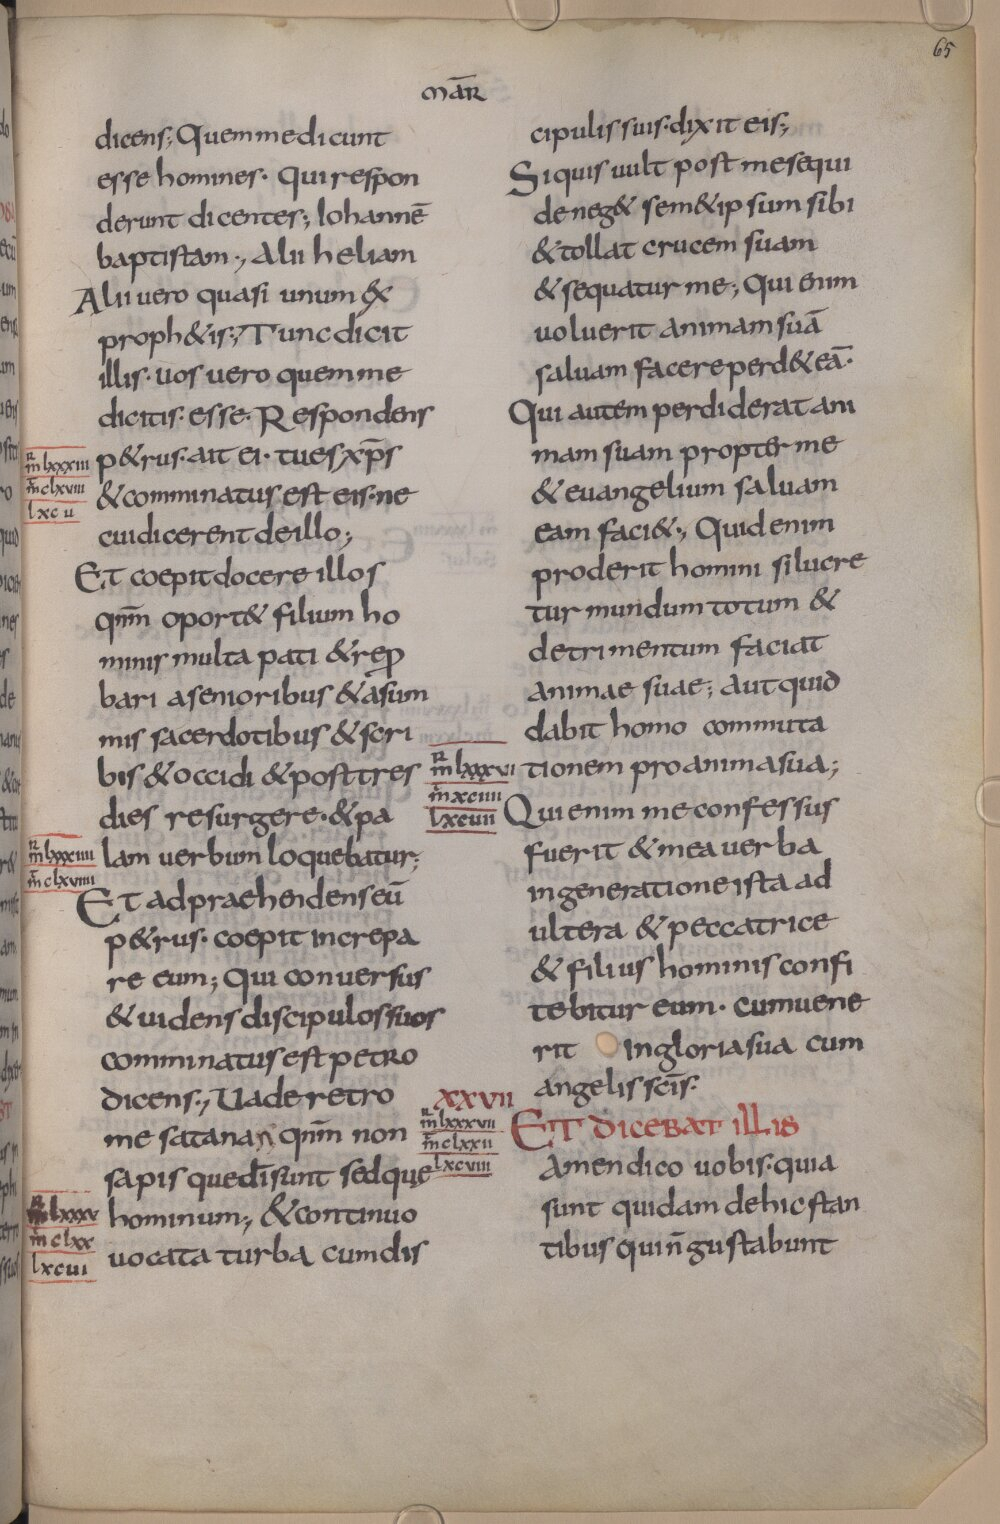 65
MAR̄
dicens; Quem me dicunt
esse homines· Qui respon
derunt dicentes; Iohannē
baptistam·, Alii heliam
Alii vero quasi unum ex
proph&is·, Tunc dicit
illis· vos vero quem me
dicitis· esse· Respondens
p&rus· ait ei· tu es xp̄s
& comminatus est eis· ne
cui dicerent de illo;
Et coepit docere illos
qnm̄ oport& filium ho
minis multa pati & rep
bari a senioribus & a sum
mis sacerdotibus & scri
bis & occidi & post tres
dies resurgere· & pa
lam verbum loquebatur;
Et adpraehendens eū
p&rus· coepit increpa
re eum; Qui conversus
& videns discipulos suos
comminatus est petro
dicens·, Vade retro
me satana qnm̄ non
sapis que dī sunt sed quę
hominum·, & continuo
vocata turba cum dis
R m̄ lxxxiii
m̄ clxviii
lxcu
R m̄ lxxxiiii
m̄ clxviiii
R m̄ lxxxv
m̄ clxx
lxcui
cipulis suis· dixit eis;
Si quis vult post me sequi
deneg& sem&ipsum sibi
& tollat crucem suam
& sequatur me·, Qui enim
voluerit animam suā
salvam facere perd& eā·
Qui autem perdiderat ani
mam suam propter me
& evangelium salvam
eam faci&·, Quid enim
proderit homini si lucre
tur mundum totum &
detrimentum faciat
animae suae; aut quid
dabit homo commuta
tionem pro anima sua;
Qui enim me confessus
fuerit & mea verba
in generatione ista ad
ultera & peccatrice
& filius hominis confi
tebitur eum· cum vene
rit in gloria sua cum
angelis scīs·
R m̄ lxxxvi
m̄ xciiii
lxcuii
XXVII
Et dicebat illis
R m̄ lxxxvii
m̄ clxxii
lxcviii
Amen dico vobis· quia
sunt quidam de hic stan
tibus qui n̄ gustabunt